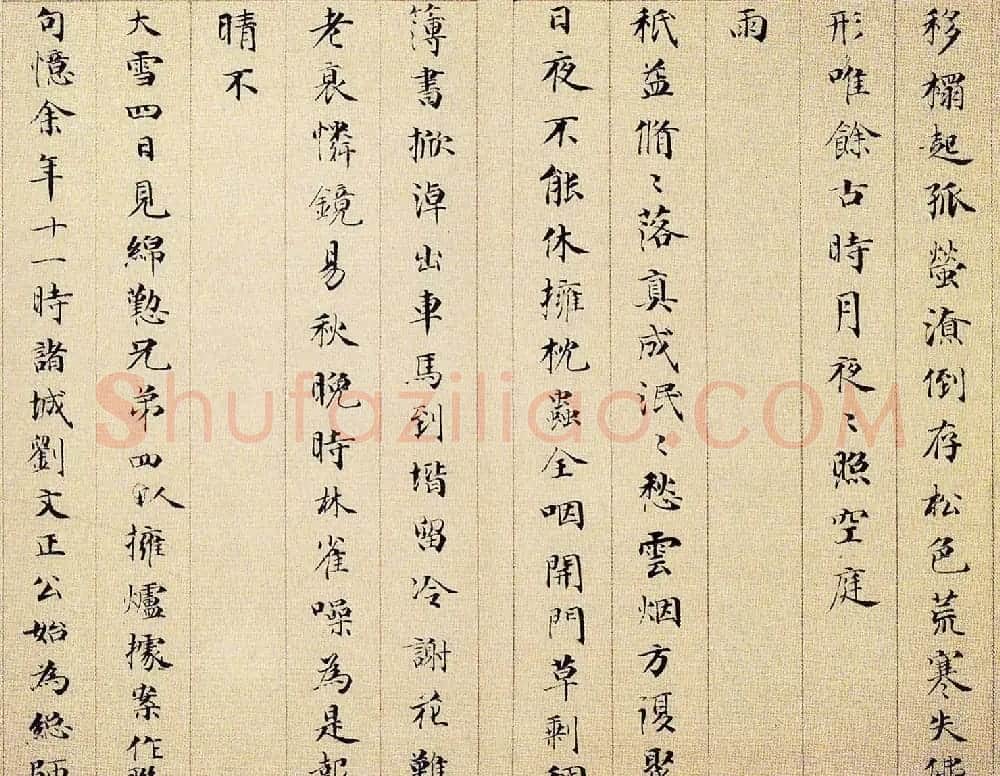 移榻起孤螢潦倒存松色荒寒失
形唯餘古時月夜〻照空庭
雨
祇益翛〻落真成泯〻愁雲烟方復聚
日夜不能休擁枕蟲全咽開門草剩
簿書掀淖出車馬到堦留冷謝花難
老衰憐鏡易秋晚時林雀噪為是
晴不
大雪四日見綿懃兄弟四人擁爐據案作
句憶余年十一時諸城劉文正公始為總師
Shufaziliao.COM